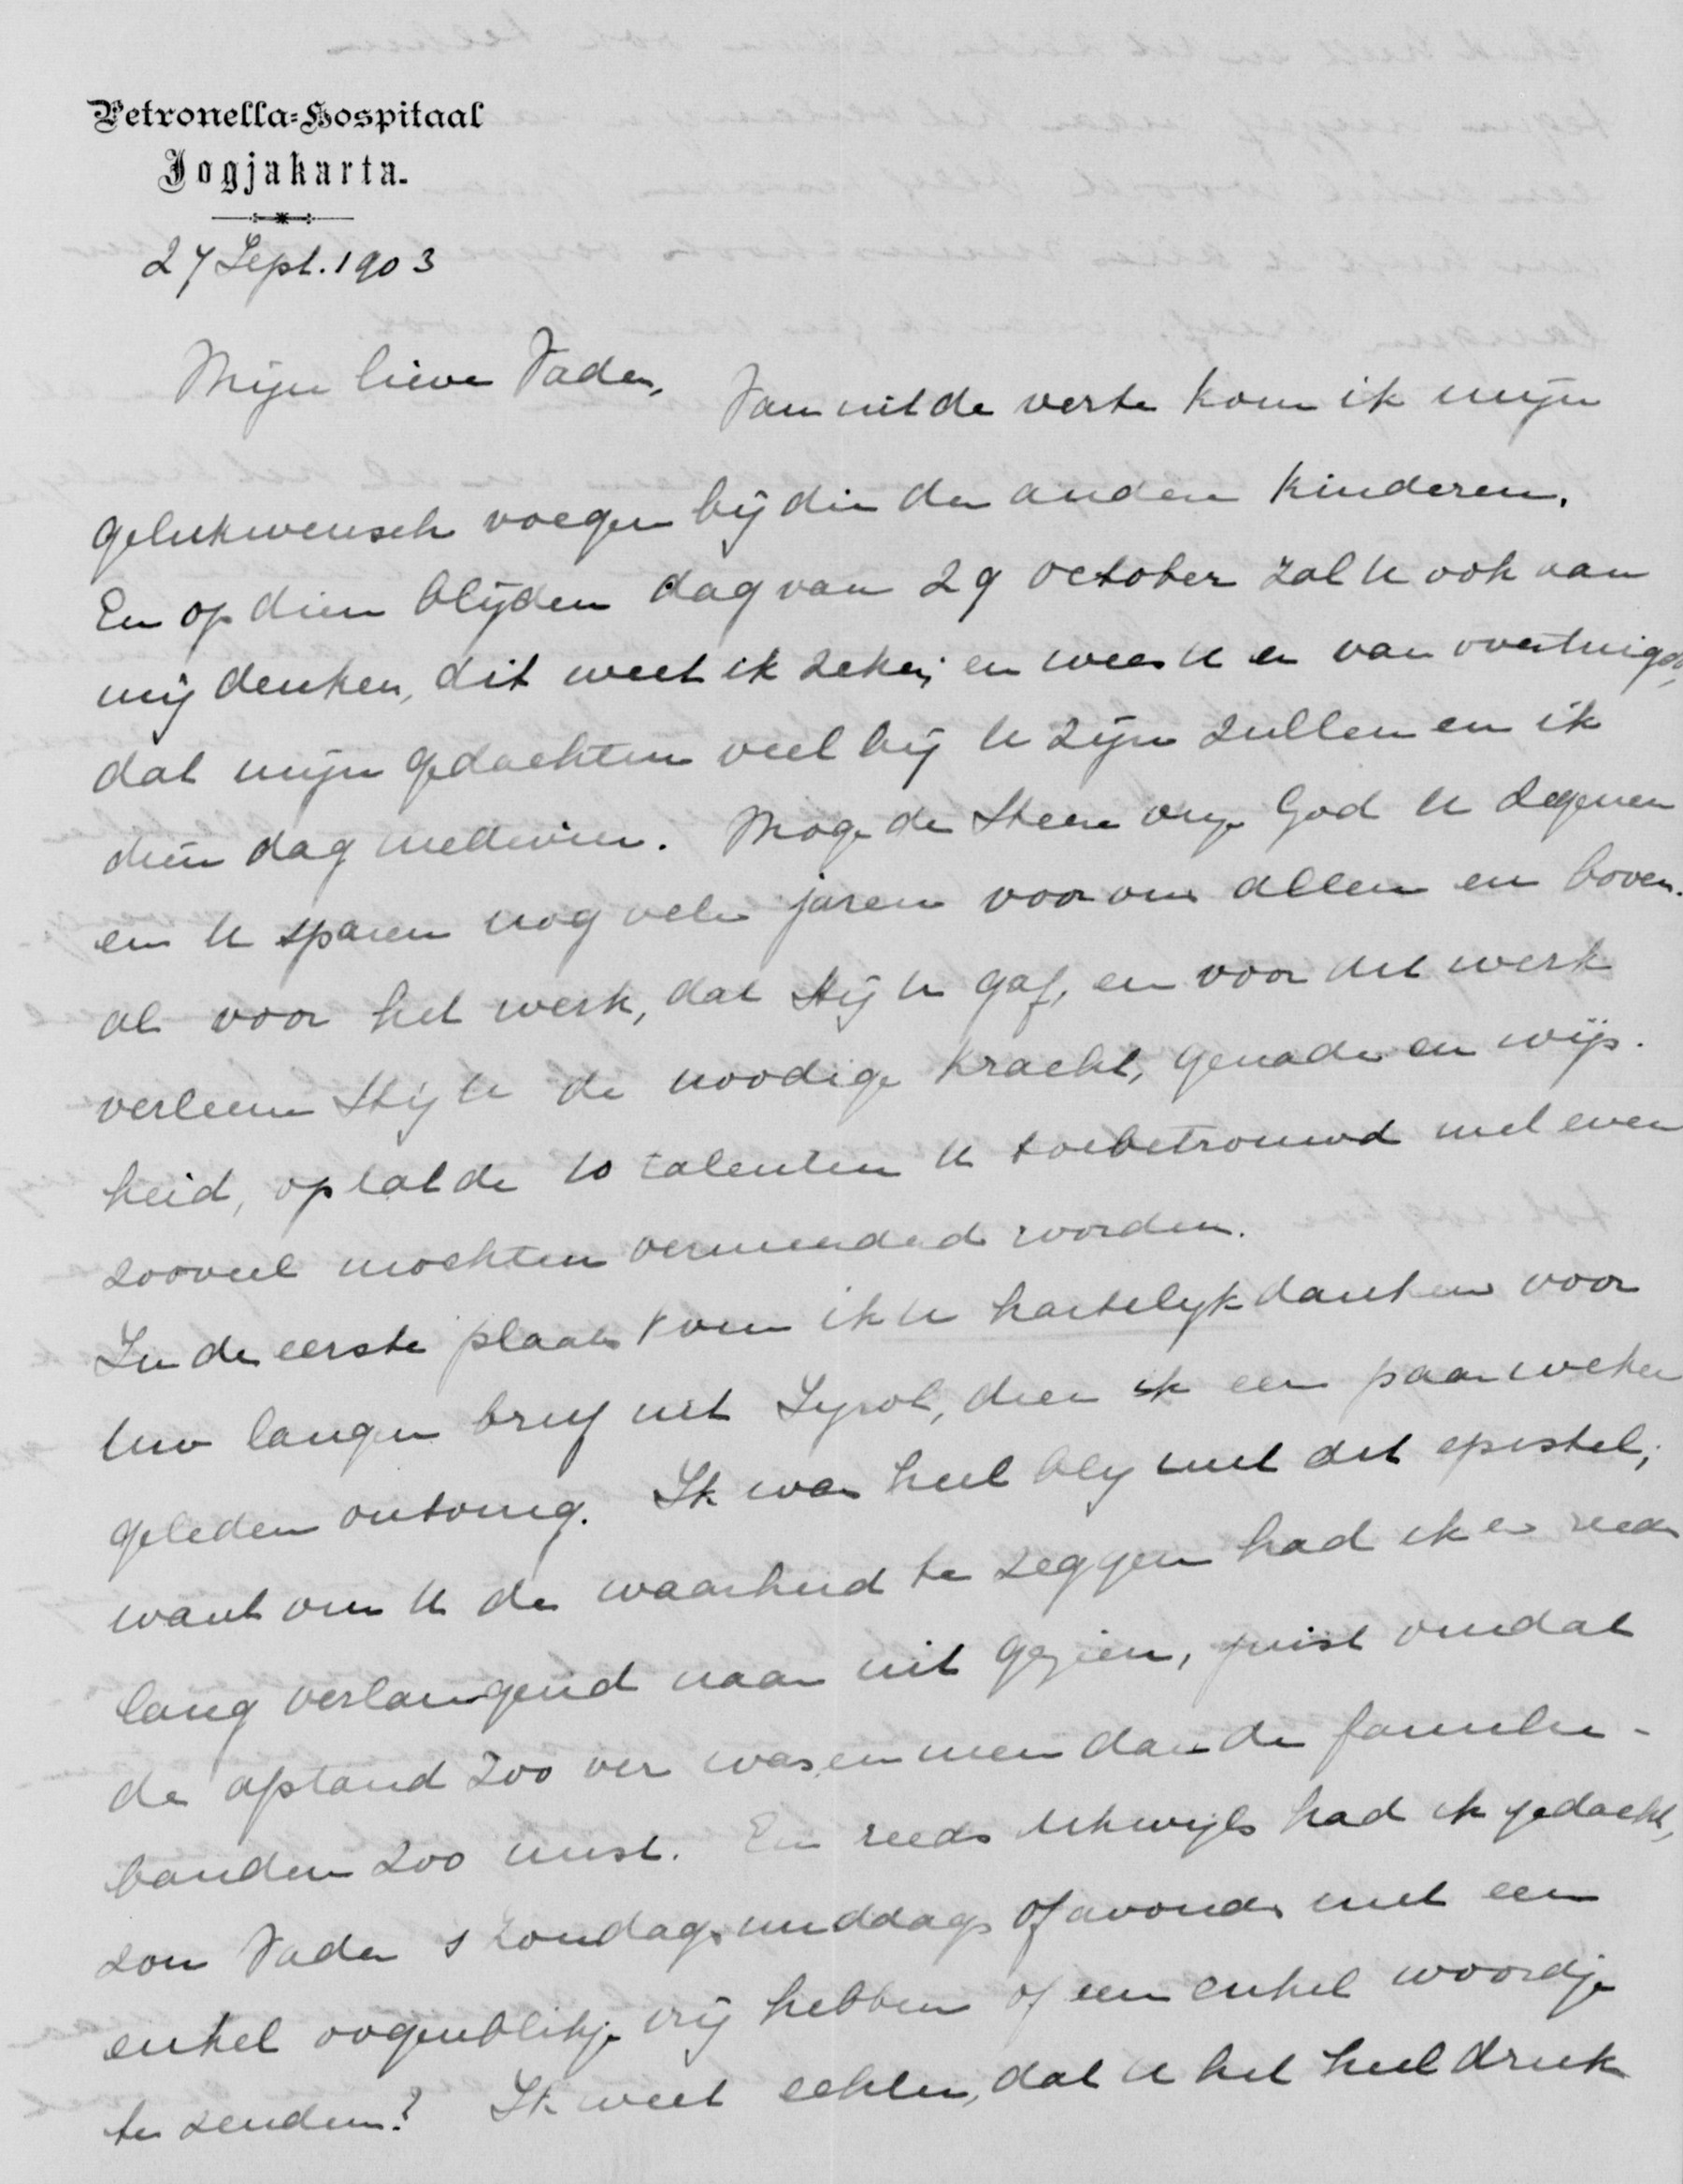 Petronella-Hospitaal
Jogjakarta.
27 Sept. 1903
Mijn lieve Vader,
Van uit de verte kom ik mijn
gelukwensch voegen bij die der andere kinderen.
En op dien blijden dag van 29 october zal U ook aan
mij denken, dit weet ik zeker; en wees U er van overtuigd,
dat mijn gedachten veel bij U zijn zullen en ik
dien dag medevier. Moge de Heere onze God U zegenen
en U sparen nog vele jaren voor ons allen en boven-
al voor het werk, dat Hij U gaf, en voor dit werk
verleene Hij U de noodige kracht, genade en wijs-
heid, opdat de 10 talenten U toebetrouwd met even
zooveel mochten vermeerderd worden.
In de eerste plaats kom ik U hartelijk danken voor
Uw langen brief uit Tyrol, dien ik een paar weken
geleden ontving. Ik was heel blij met dit epistel;
want om U de waarheid te zeggen had ik er reeds
lang verlangend naar uit gezien, juist omdat
de afstand zoo ver was, en men dan de familie-
banden zoo mist. En reeds dikwijls had ik gedacht,
zou Vader s Zondagsmiddags of avonds niet een
enkel oogenblikje vrij hebben of een enkel woordje
te zenden? Ik weet echter, dat U het heel druk